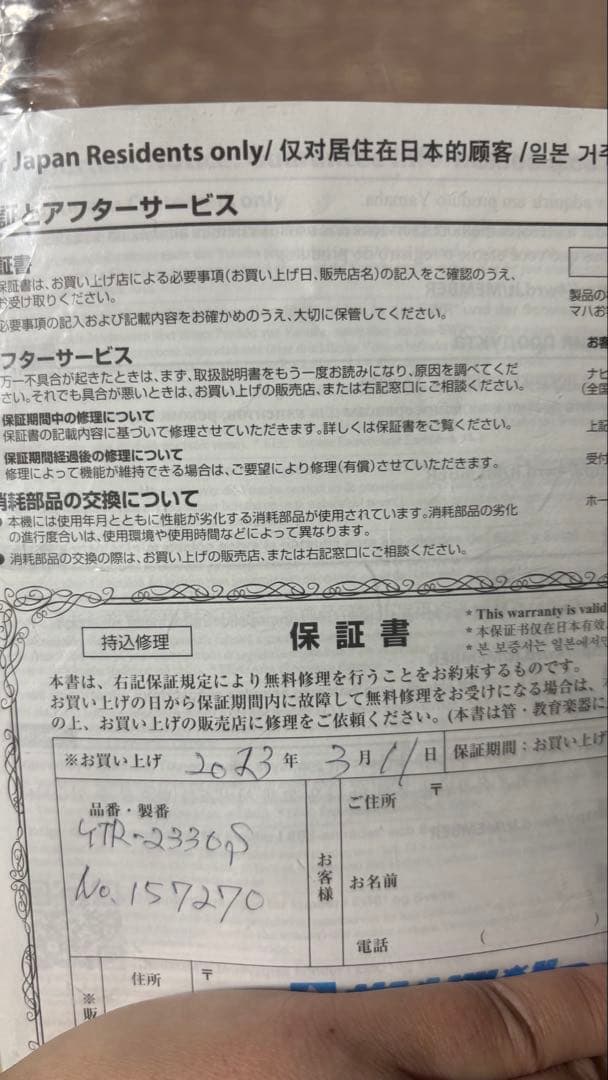 Japan Residents only/ 仅对居住在日本的顾客 /일본 거주
証とアフターサービス
証書
保証書は、お買い上げ店による必要事項(お買い上げ日、販売店名)の記入をご確認のうえ、
お受け取りください。
必要事項の記入および記載内容をお確かめのうえ、大切に保管してください。
フターサービス
万一不具合が起きたときは、まず、取扱説明書をもう一度お読みになり、原因を調べてくだ
さい。それでも具合が悪いときは、お買い上げの販売店、または右記窓口にご相談ください。
保証期間中の修理について
保証書の記載内容に基づいて修理させていただきます。詳しくは保証書をご覧ください。
保証期間経過後の修理について
修理によって機能が維持できる場合は、ご要望により修理(有償)させていただきます。
消耗部品の交換について
● 本機には使用年月とともに性能が劣化する消耗部品が使用されています。消耗部品の劣化
の進行度合いは、使用環境や使用時間などによって異なります。
● 消耗部品の交換の際は、お買い上げの販売店、または右記窓口にご相談ください。
製品の
マハお
お客
ナビ
(全国
上記
受付
ホー
持込修理
保証書
* This warranty is valid
* 本保证书仅在日本有效
* 본 보증서는 일본에서만
本書は、右記保証規定により無料修理を行うことをお約束するものです。
お買い上げの日から保証期間内に故障して無料修理をお受けになる場合は、
の上、お買い上げの販売店に修理をご依頼ください。(本書は管・教育楽器に
※お買い上げ 2023年 3月 11日
保証期間:お買い上げ
品番・製番
YTR-2330S
No. 157270
お客様
ご住所 〒
お名前
電話 ( )
※販
住所 〒